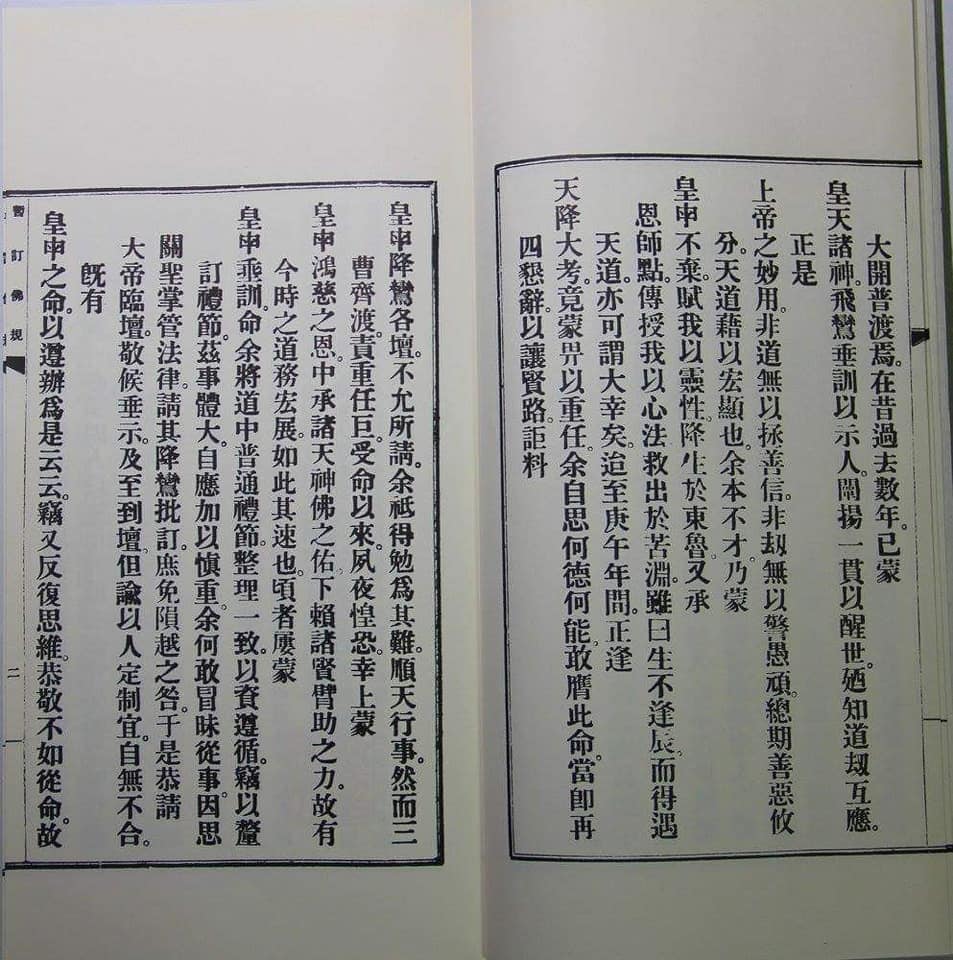 大開普渡焉。在昔過去數年。已蒙
皇天諸神。飛鸞垂訓以示人。闡揚一貫以醒世。廼知道刼互應。
正是
上帝之妙用。非道無以拯善信。非刼無以警愚頑。總期善惡攸
分。天道藉以宏顯也。余本不才。乃蒙
皇申不棄。賦我以靈性。降生於東魯。又承
恩師點。傳授我以心法。救出於苦淵。雖曰生不逢辰。而得遇
天道。亦可謂大幸矣。迨至庚午年間。正逢
天降大考。竟蒙畀以重任。余自思何德何能。敢膺此命。當卽再
四懇辭。以讓賢路。詎料
皇申降鸞各壇。不允所請。余祇得勉爲其難。順天行事。然而三
曹齊渡。責重任巨。受命以來。夙夜惶恐。幸上蒙
皇申鴻慈之恩。中承諸天神佛之佑。下賴諸賢臂助之力。故有
今時之道務宏展。如此其速也。頃者屢蒙
皇申乘訓。命余將道中普通禮節。整理一致。以資遵循。竊以釐
訂禮節。茲事體大。自應加以慎重。余何敢冒昧從事。因思
關聖掌管法律。請其降鸞批訂。庶免隕越之咎。于是恭請
大帝臨壇。敬候垂示。及至到壇。但諭以人定制宜。自無不合。
旣有
皇申之命。以遵辦爲是云云。竊又反復思維。恭敬不如從命。故
暫訂佛規
二